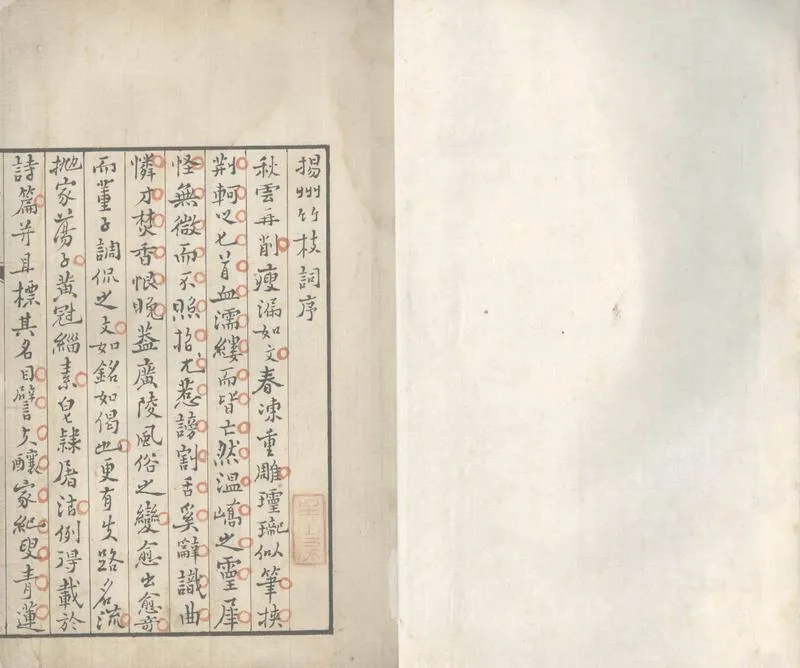 揚州竹枝詞序
秋雲再削瘦漏如文春凍重雕玲瓏似筆挾
荆軻之匕首血濡縷而皆亡然溫嶠之靈犀
怪無微而不照招尤惹謗割舌奚辭識曲
憐才焚香恨晚蓋廣陵風俗之變愈出愈奇
而董子調侃之文如銘如偈也更有失路名流
抛家蕩子黃冠緇素皂隸屠沽例得載於
詩篇并且標其名目譬夫釀家紀叟青蓮